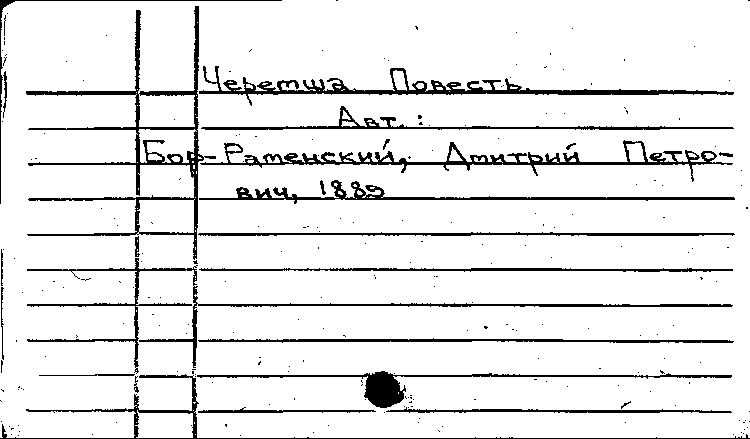 Черемша. Повесть.
Авт.:
Бор-Раменский, Дмитрий Петро-
вич, 1889